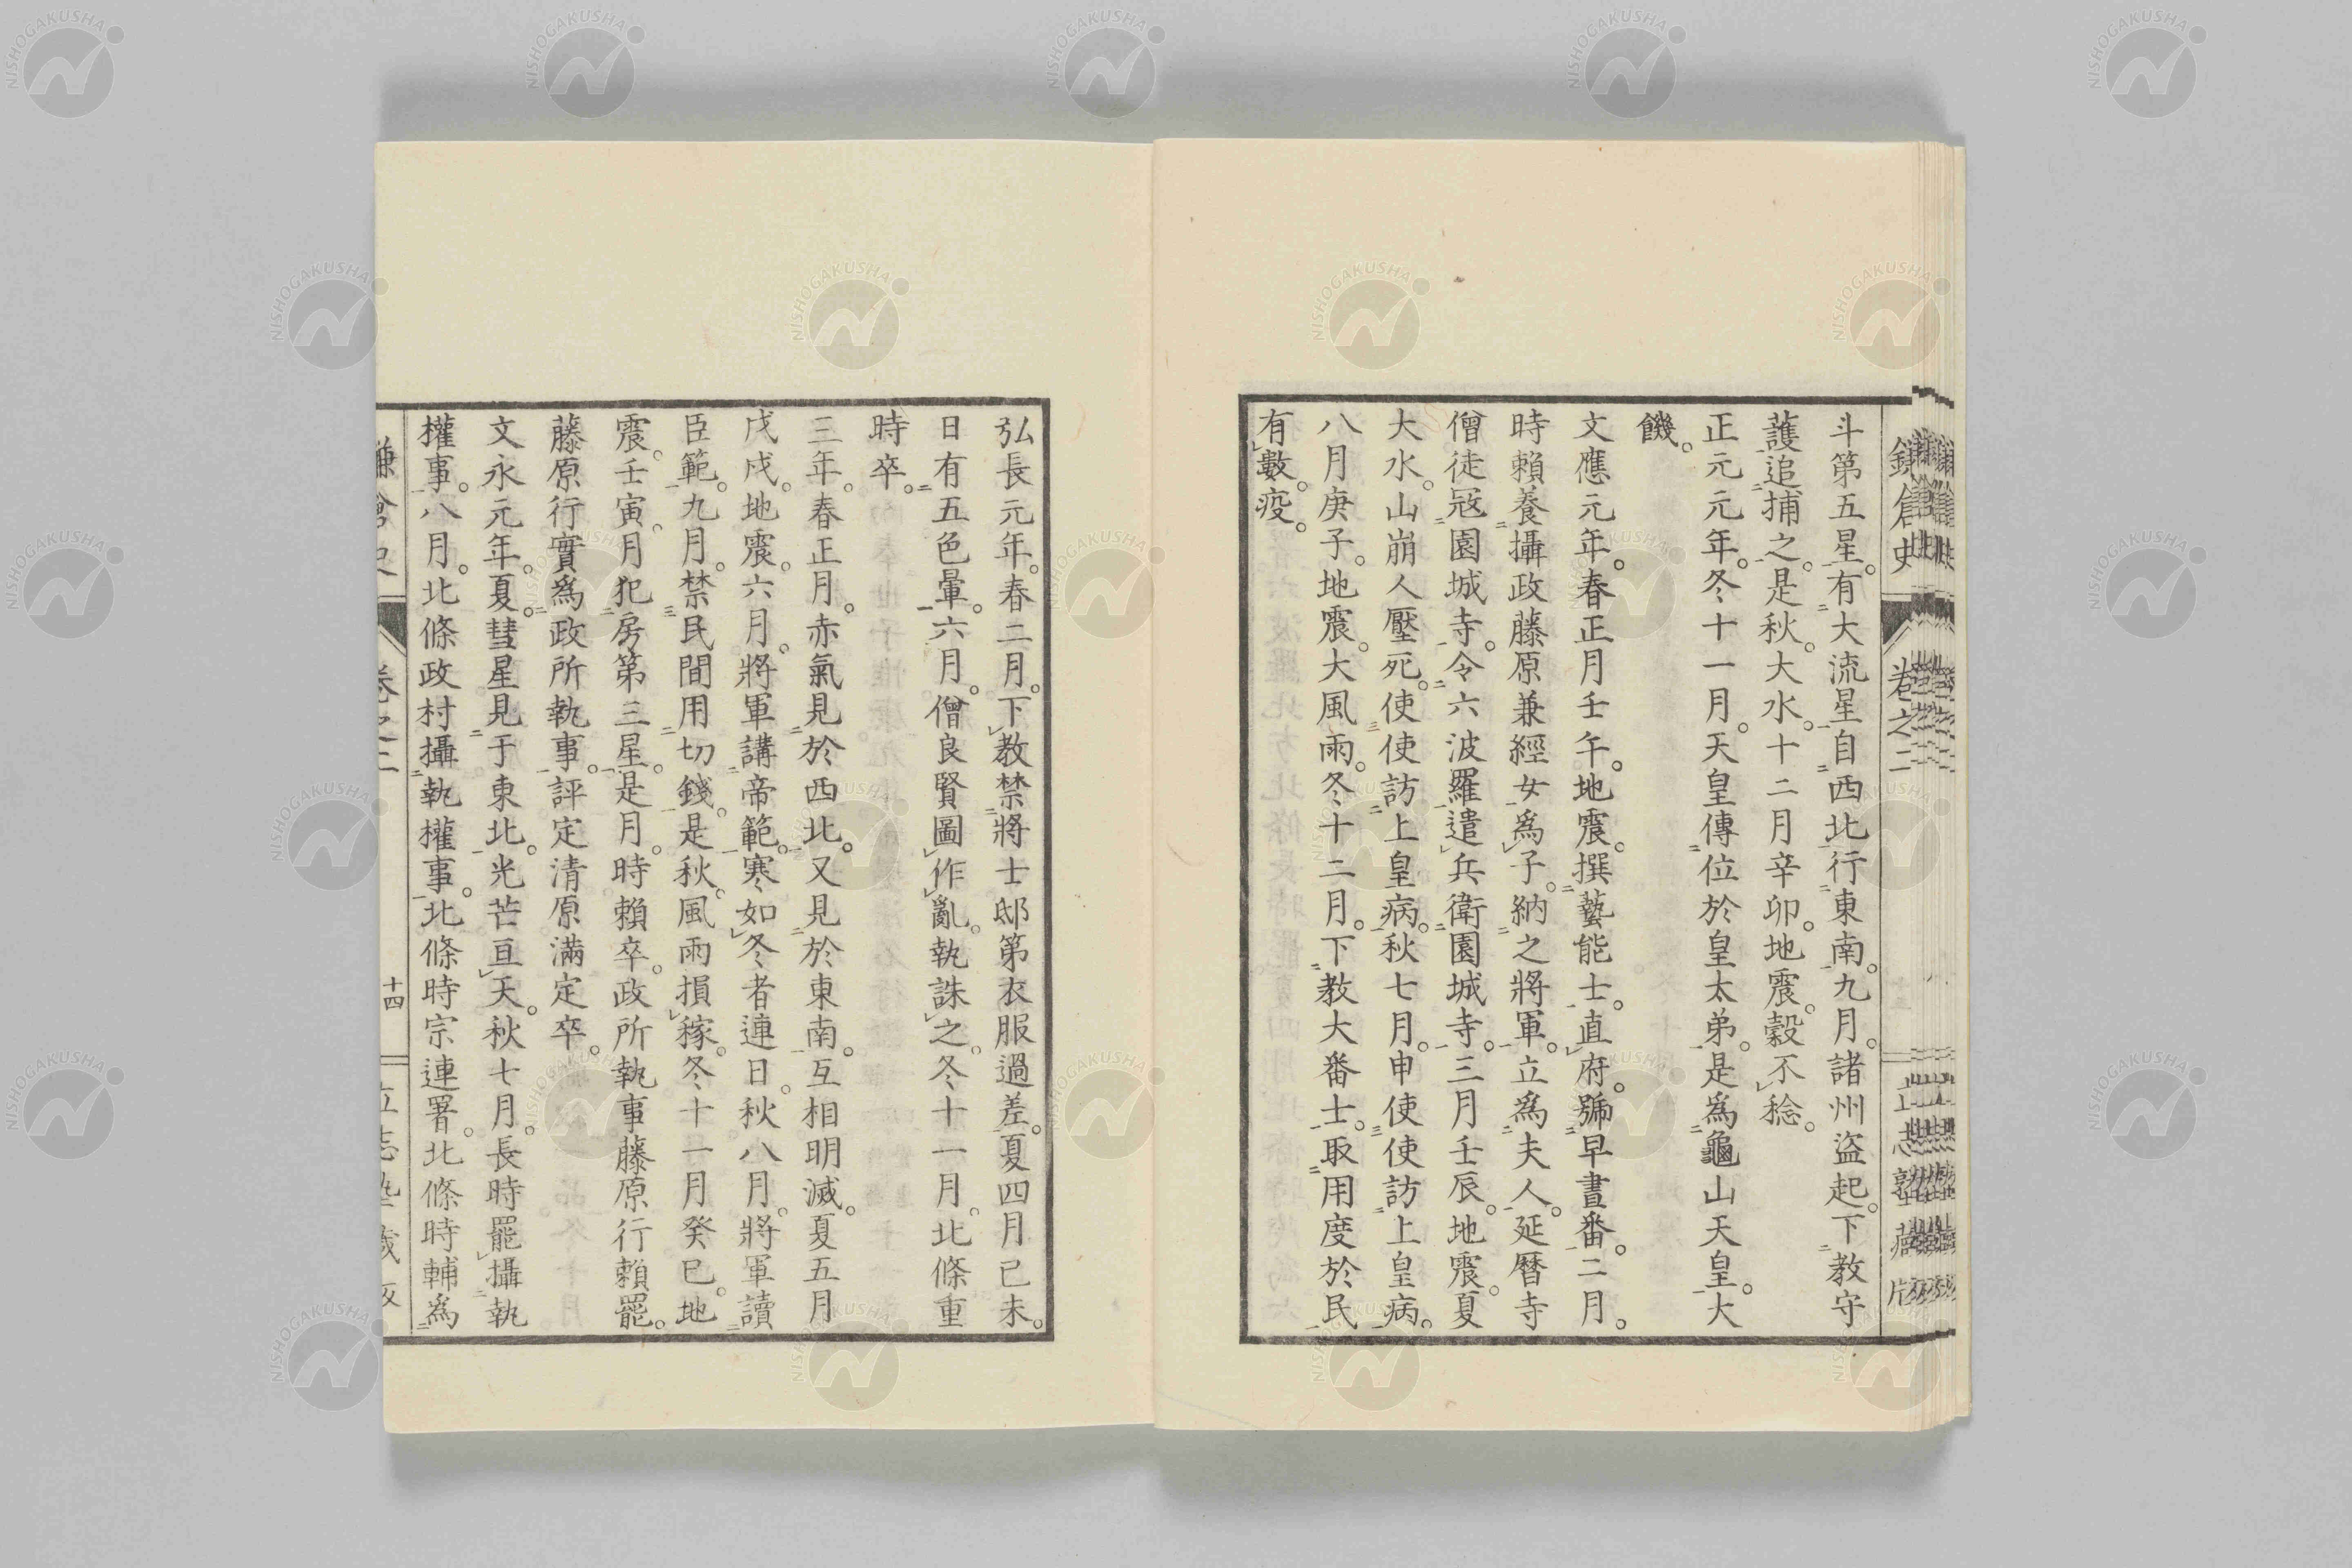 鎌倉史 卷之二 立志塾藏
斗第五星。有大流星自西北行東南。九月。諸州盜起。下教守
護追捕之。是秋。大水。十二月辛卯。地震。穀不稔。
正元元年。冬十一月。天皇傳位於皇太弟。是爲龜山天皇。大
饑。
文應元年。春正月壬午。地震。撰藝能士。直府。號早晝番。二月。
時賴養攝政藤原兼經女爲子。納之將軍。立爲夫人。延曆寺
僧徒寇園城寺。令六波羅遣兵衛園城寺。三月壬辰。地震。夏
大水。山崩人壓死。使使訪上皇病。秋七月。申使使訪上皇病。
八月庚子。地震。大風雨。冬十二月。下教大番士。取用度於民
有數。疫。
弘長元年。春二月。下教禁將士邸第衣服過差。夏四月己未。
日有五色暈。六月。僧良賢圖作亂。執誅之。冬十一月。北條重
時卒。
三年。春正月。赤氣見於西北。又見於東南。互相明滅。夏五月
戊戌。地震。六月。將軍講帝範。寒如冬者連日。秋八月。將軍讀
臣範。九月。禁民間用切錢。是秋。風雨損稼。冬十一月癸巳。地
震。壬寅。月犯房第三星。是月。時賴卒。政所執事藤原行賴罷。
藤原行實爲政所執事。評定清原滿定卒。
文永元年。夏。彗星見于東北。光芒亘天。秋七月。長時罷攝執
權事。八月。北條政村攝執權事。北條時宗連署。北條時輔爲
十四